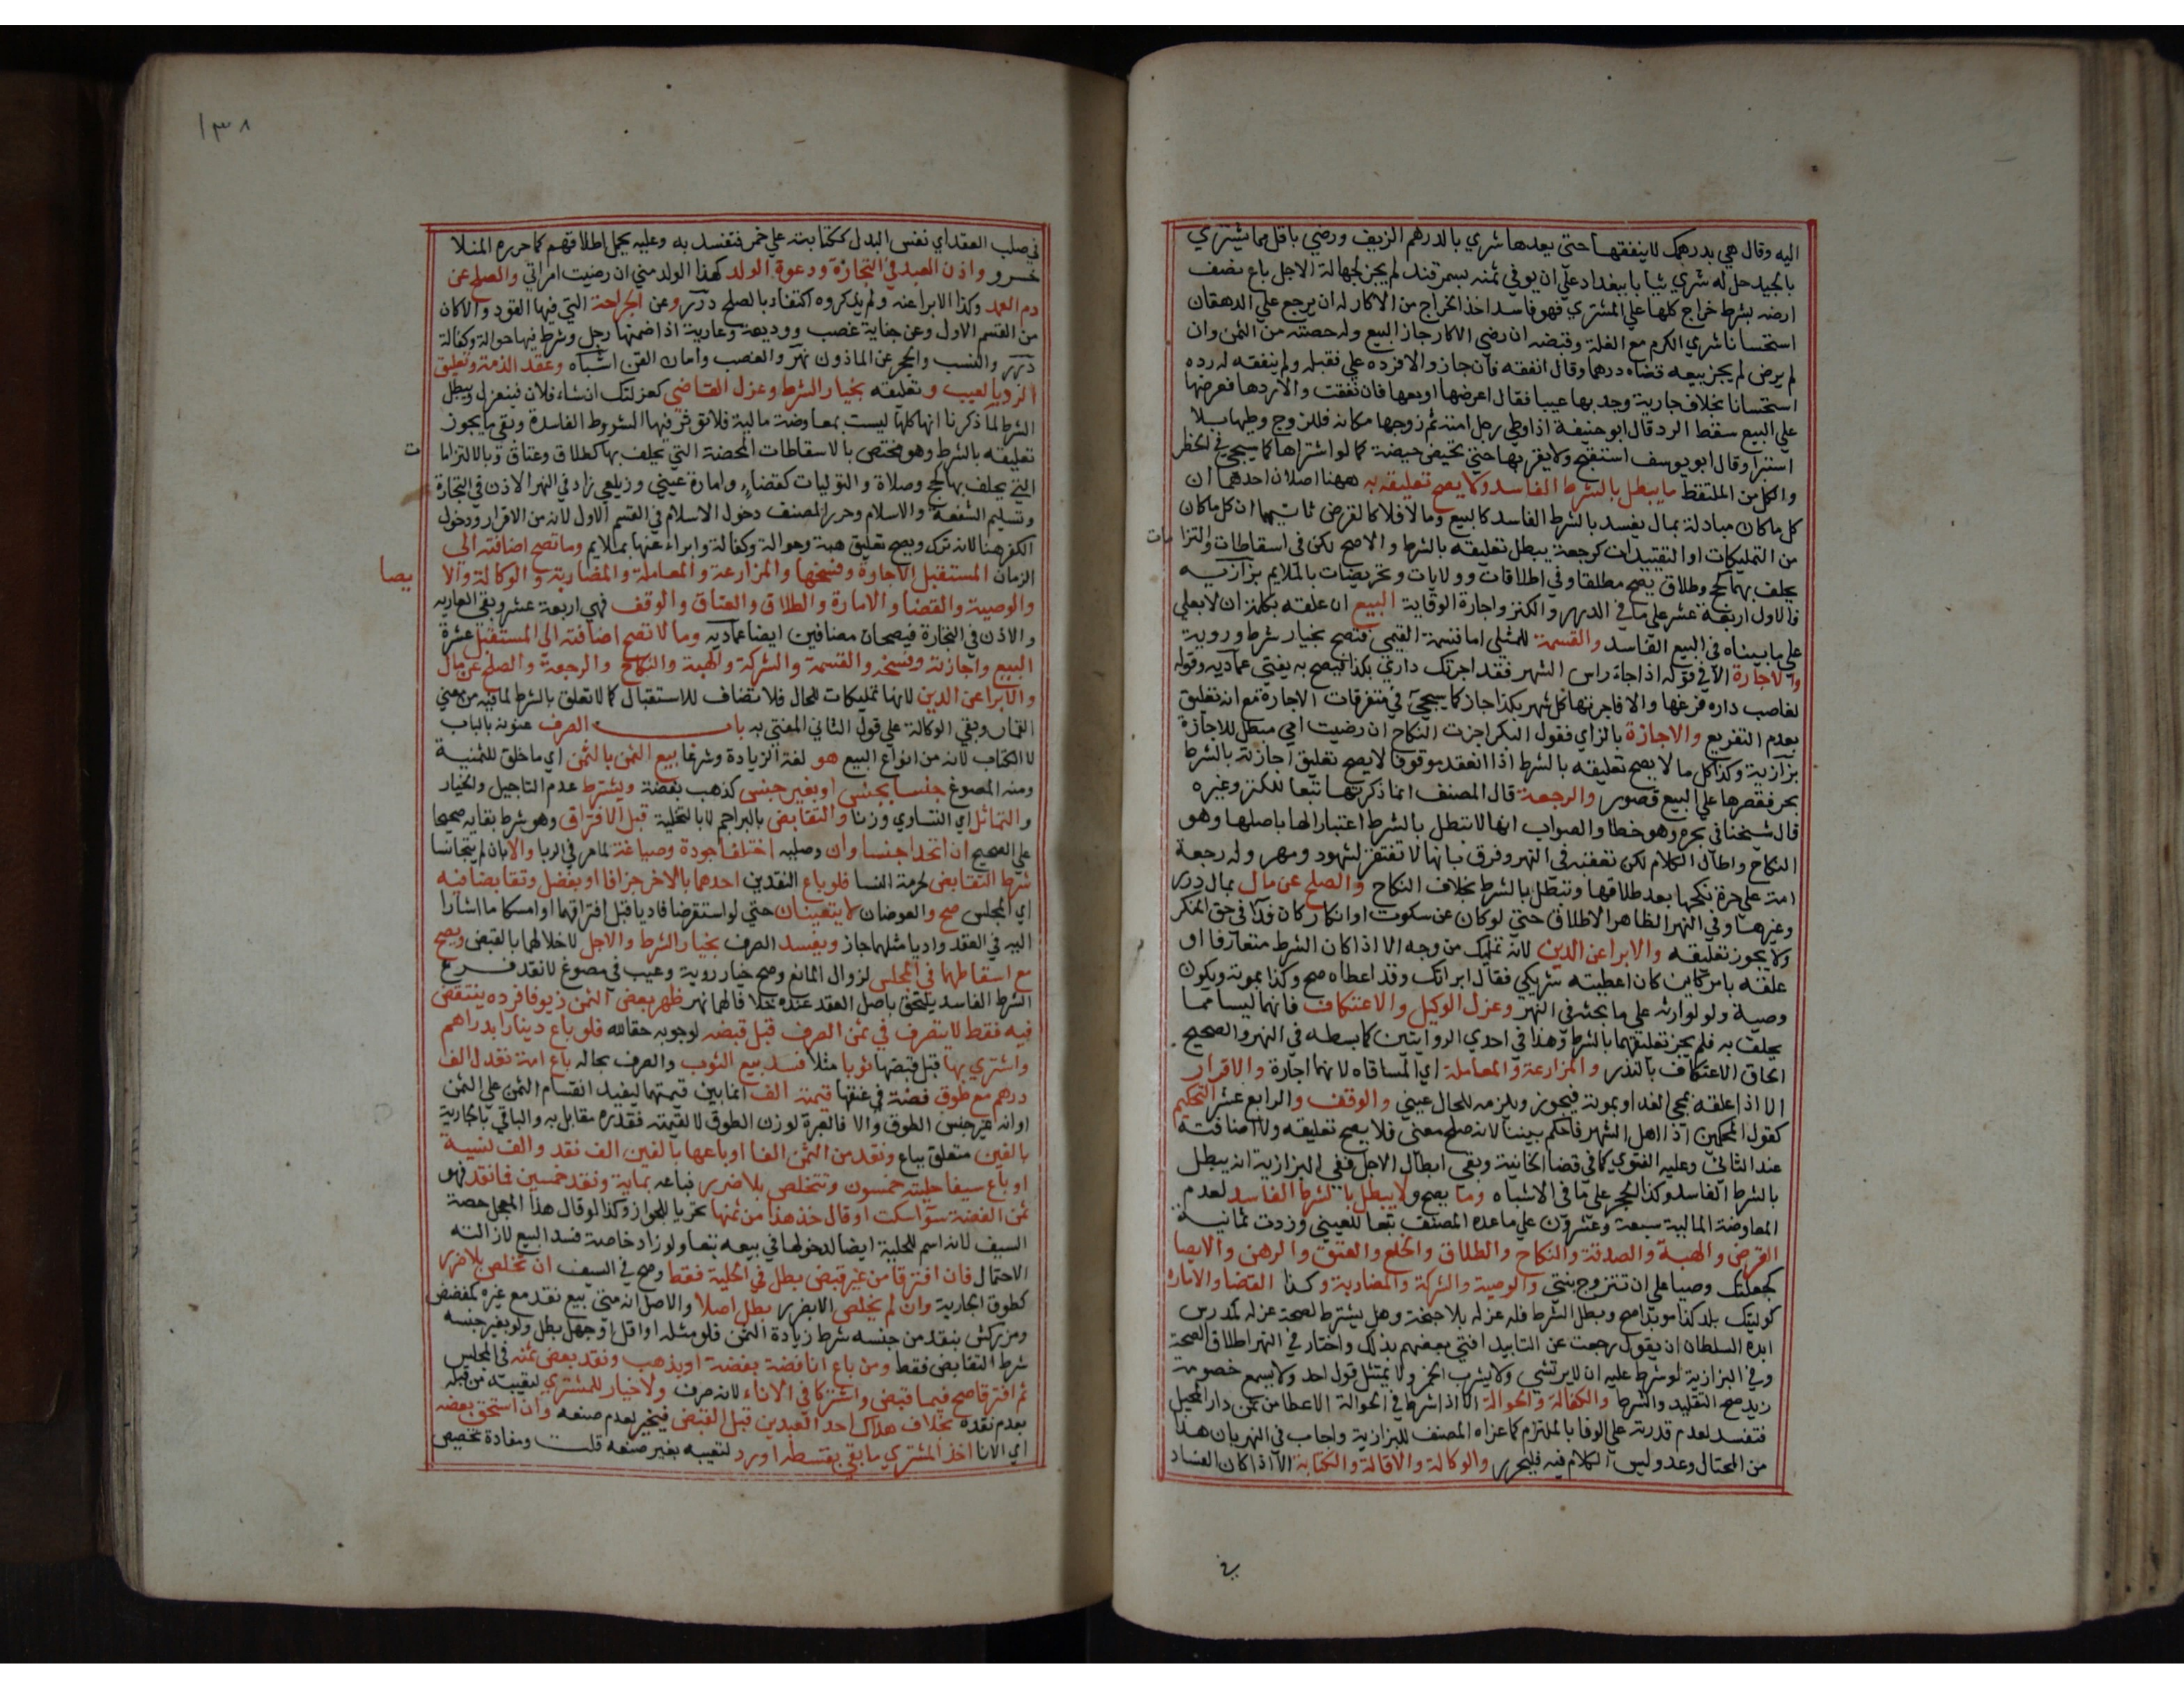 اليه وقال هي بدرهمك لاينفقها حتى يعدها شري بالدرهم الزيف ورضي باقل مما يشتري
بالجيد حل له شري ثيابا ببغداد علي ان يوفي ثمنه بسمرقند لم يجز لجهالة الاجل باع نصف
ارضه بشرط خراج كلها علي المشتري فهو فاسد اخذ الخراج من الاكار له ان يرجع علي الدهقان
استحسانا شري الكرم مع الغلة وقبضه ان رضي الاكار جاز البيع وله حصته من الثمن وان
لم يرض لم يجز بيعه قضاه درهما وقال انفقه فان جاز والا فرده علي فقبله ولم ينفقه له رده
استحسانا بخلاف جارية وجد بها عيبا فقال اعرضها او بعها فان نفقت والا ردها فعرضها
علي البيع سقط الرد قال ابو حنيفة اذا وطي رجل امته ثم زوجها مكانه فللزوج وطيها بلا
استبرا وقال ابو يوسف استقبح ولا يقربها حتى تحيض حيضة كما لو اشتراها كما سيجي في الحظر
والكل من الملتقط ما يبطل بالشرط الفاسد ولا يصح تعليقه به ههنا اصلان احدهما ان
كل ما كان مبادلة بمال يفسد بالشرط الفاسد كالبيع وما لا فلا كالقرض ثانيهما ان كل ما كان
من التمليكات او التقييدات كرجعة يبطل تعليقه بالشرط والا صح لكن في اسقاطات والتزا مات
يحلف بهما كحج وطلاق يصح مطلقا وفي اطلاقات وولايات وتحريضات بالملايم بزازيه
فالاول اربعة عشر علي ما في الدرر والكنز واجارة الوقاية البيع ان علقه بكلمة ان لا بعلي
علي ما بيناه في البيع الفاسد والقسمة للمثلي اما قسمة القيمي فتصح بخيار شرط وروية
والاجارة الا في قوله اذا جاء راس الشهر فقد اجرتك داري بكذا فيصح به يفتي عماديه وقوله
لغاصب داره فرغها والا فاجرتها كل شهر بكذا جاز كما سيجيء في متفرقات الاجارة مع انه تعليق
بعدم التفريغ والاجازة بالزاي فقول البكر اجزت النكاح ان رضيت امي مبطل للاجازة
بزازية وكذا كل ما لا يصح تعليقه بالشرط اذا انعقد موقوفا لا يصح تعليق اجازته بالشرط
بحر فقصرها علي البيع قصور والرجعة قال المصنف انما ذكرتها تبعا للكنز وغيره
قال شيخنا في بحره وهو خطا والصواب انها لا تبطل بالشرط اعتبارا لها باصلها وهو
النكاح واطال الكلام لكن تعقبه في النهر وفرق بانها لا تفتقر لشهود ومهر وله رجعة
امة علي حرة نكحها بعد طلاقها وتبطل بالشرط بخلاف النكاح والصلح عن مال بمال درر
وغيرها وفي النهر الظاهر الاطلاق حتى لو كان عن سكوت او انكار كان فدا في حق المنكر
ولا يجوز تعليقه والابرا عن الدين لانه تمليك من وجه الا اذا كان الشرط متعارفا او
علقه بامر كاين كان اعطيته شريكي فقال ابراتك وقد اعطاه صح وكذا بموته ويكون
وصية ولو لوارثه علي ما بحثه في النهر وعزل الوكيل والاعتكاف فانهما ليسا مما
يحلف به فلم يجز تعليقهما بالشرط وهذا في احدي الروايتين كما بسطه في النهر والصحيح
الحاق الاعتكاف بالنذر والمزارعة والمعاملة اي المساقاه لانهما اجارة والاقرار
الا اذا علقه بمجي الغد او بموته فيجوز ويلزمه للحال عيني والوقف والرابع عشر التحكيم
كقول المحكمين اذا اهل الشهر فاحكم بيننا لانه صلح معنى فلا يصح تعليقه ولا اضافته
عند الثاني وعليه الفتوي كما في قضا الخانية وبقي ابطال الاجل ففي البزازية انه يبطل
بالشرط الفاسد وكذا الحجر علي ما في الاشباه وما يصح ولا يبطل بالشرط الفاسد لعدم
المعاوضة المالية سبعة وعشرون علي ما عده المصنف تبعا للعيني وزدت ثمانية
القرض والهبة والصدقة والنكاح والطلاق والخلع والعتق والرهن والايصا
كجعلتك وصيا علي ان تتزوج بنتي والوصية والشركة والمضاربة وكذا القضا والاماره
كوليتك بلد كذا موبدا صح وبطل الشرط فله عزله بلا جنحة وهل يشترط لصحة عزله لمدرس
ابده السلطان ان يقول رجعت عن التابيد افتي بعضهم بذلك واختار في النهر اطلاق الصحة
وفي البزازية لو شرط عليه ان لا يرتشي ولا يشرب الخمر ولا يمتثل قول احد ولا يسمع خصومة
زيد صح التقليد والشرط والكفالة والحوالة الا اذا شرط في الحوالة الاعطا من ثمن دار المحيل
فتفسد لعدم قدرته علي الوفا بالملتزم كما عزاه المصنف للبزازية واجاب في النهر بان هذا
من المحتال وعد وليس الكلام فيه فليحرر والوكالة والاقالة والكتابة الا اذا كان الفساد
في
١٣٨
في صلب العقد اي نفس البدل ككتابته علي خمر فتفسد به وعليه يحمل اطلاقهم كما حرره المنلا
خسرو واذن العبد في التجازة ودعوة الولد كهذا الولد مني ان رضيت امراتي والصلح عن
دم العمد وكذا الابرا عنه ولم يذكروه اكتفاء بالصلح درر وعن الجراحة التي فيها القود والا كان
من القسم الاول وعن جناية غصب ووديعة وعارية اذا ضمنها رجل وشرط فيها حوالة وكفالة
درر والنسب والحجر عن الماذون نهر والغصب وامان القن اشباه وعقد الذمة وتعليق
الرد بالعيب وتعليقه بخيار الشرط وعزل القاضي كعزلتك ان شاء فلان فينعزل ويبطل
الشرط لما ذكرنا انها كلها ليست بمعاوضة مالية فلا تؤثر فيها الشروط الفاسدة وبقي ما يجوز
تعليقه بالشرط وهو مختص بالاسقاطات المحضة التي يحلف بها كطلاق وعتاق وبالالتزاما ت
التي يحلف بها كحج وصلاة والتوليات كقضاء وامارة عيني وزيلعي زاد في النهر الاذن في التجارة
وتسليم الشفعة والاسلام وحرر المصنف دخول الاسلام في القسم الاول لانه من الاقرار ودخول
الكفر هنا لانه ترك ويصح تعليق هبة وحوالة وكفالة وابراء عنها بملايم وما تصح اضافته الي
الزمان المستقبل الاجارة وفسخها والمزارعة والمعاملة والمضاربة والوكالة والا يصا
والوصية والقضا والامارة والطلاق والعتاق والوقف فهي اربعة عشر وبقي العاريه
والاذن في التجارة فيصحان مضافين ايضا عماديه وما لا تصح اضافته الي المستقبل عشرة
البيع واجازته وفسخه والقسمة والشركة والهبة والنكاح والرجعة والصلح عن مال
والابرا عن الدين لانها تمليكات للحال فلا تضاف للاستقبال كما لا تعلق بالشرط لما فيه من معني
القمار وبقي الوكالة علي قول الثاني المفتي به باب الصرف عنونه بالباب
لا الكتاب لانه من انواع البيع هو لغة الزيادة وشرعا بيع الثمن بالثمن اي ما خلق للثمنية
ومنه المصوغ جنسا بجنس او بغير جنس كذهب بفضة ويشترط عدم التاجيل والخيار
والتماثل اي التساوي وزنا والتقابض بالبراجم لا بالتخلية قبل الافتراق وهو شرط بقايه صحيحا
علي الصحيح ان اتحدا جنسا وان وصليه اختلفا جودة وصياغة لما مر في الربا والا بان لم يتجانسا
شرط التقابض لحرمة النسا فلو باع النقدين احدهما بالاخر جزافا او بفضل وتقابضا فيه
اي المجلس صح والعوضان لا يتعينان حتي لو استقرضا فاديا قبل افتراقهما او امسكا ما اشارا
اليه في العقد واديا مثلهما جاز ويفسد الصرف بخيار الشرط والاجل لاخلالهما بالقبض ويصح
مع اسقاطهما في المجلس لزوال المانع وصح خيار روية وعيب في مصوغ لا نقد فرع
الشرط الفاسد يلتحق باصل العقد عنده خلافا لهما نهر ظهر بعض الثمن زيوفا فرده ينتقض
فيه فقط لا يتصرف في ثمن الصرف قبل قبضه لوجوبه حقا لله فلو باع دينارا بدراهم
واشتري بها قبل قبضها ثوبا مثلا فسد بيع الثوب والصرف بحاله باع امة تعدل الف
درهم مع طوق فضة في عنقها قيمته الف انما بين قيمتهما ليفيد انقسام الثمن علي الثمن
او انه غير جنس الطوق والا فالعبرة لوزن الطوق لا لقيمته فقدره مقابل به والباقي بالجارية
بالفين متعلق بباع ونقد من الثمن الفا او باعها بالفين الف نقد والف نسية
او باع سيفا حليته خمسون وتتخلص بلا ضرر فباعه بماية ونقد خمسين فما نقد فهو
ثمن الفضة سوا سكت او قال خذ هذا من ثمنها تحريا للجواز وكذا لو قال هذا المعجل حصة
السيف لانه اسم للحلية ايضا لدخولها في بيعه تبعا ولو زاد خاصة فسد البيع لازالته
الاحتمال فان افترقا من غير قبض بطل في الحلية فقط وصح في السيف ان تخلص بلا ضرر
كطوق الجارية وان لم يخلص الا بضرر بطل اصلا والاصل انه متى بيع نقد مع غيره كمفضض
ومزركش بنقد من جنسه شرط زيادة الثمن فلو مثله او اقل او جهل بطل ولو بغير جنسه
شرط التقابض فقط ومن باع انا فضة بفضة او بذهب ونقد بعض ثمنه في المجلس
ثم افترقا صح فيما قبض واشتركا في الاناء لانه صرف ولا خيار للمشتري لتعيبه من قبله
بعدم نقده بخلاف هلاك احد العبدين قبل القبض فيخير لعدم صنعه وان استحق بعضه
اي الانا اخذ المشتري ما بقي بقسطه او رد لتعيبه بغير صنعه قلت ومفاده تخصيص